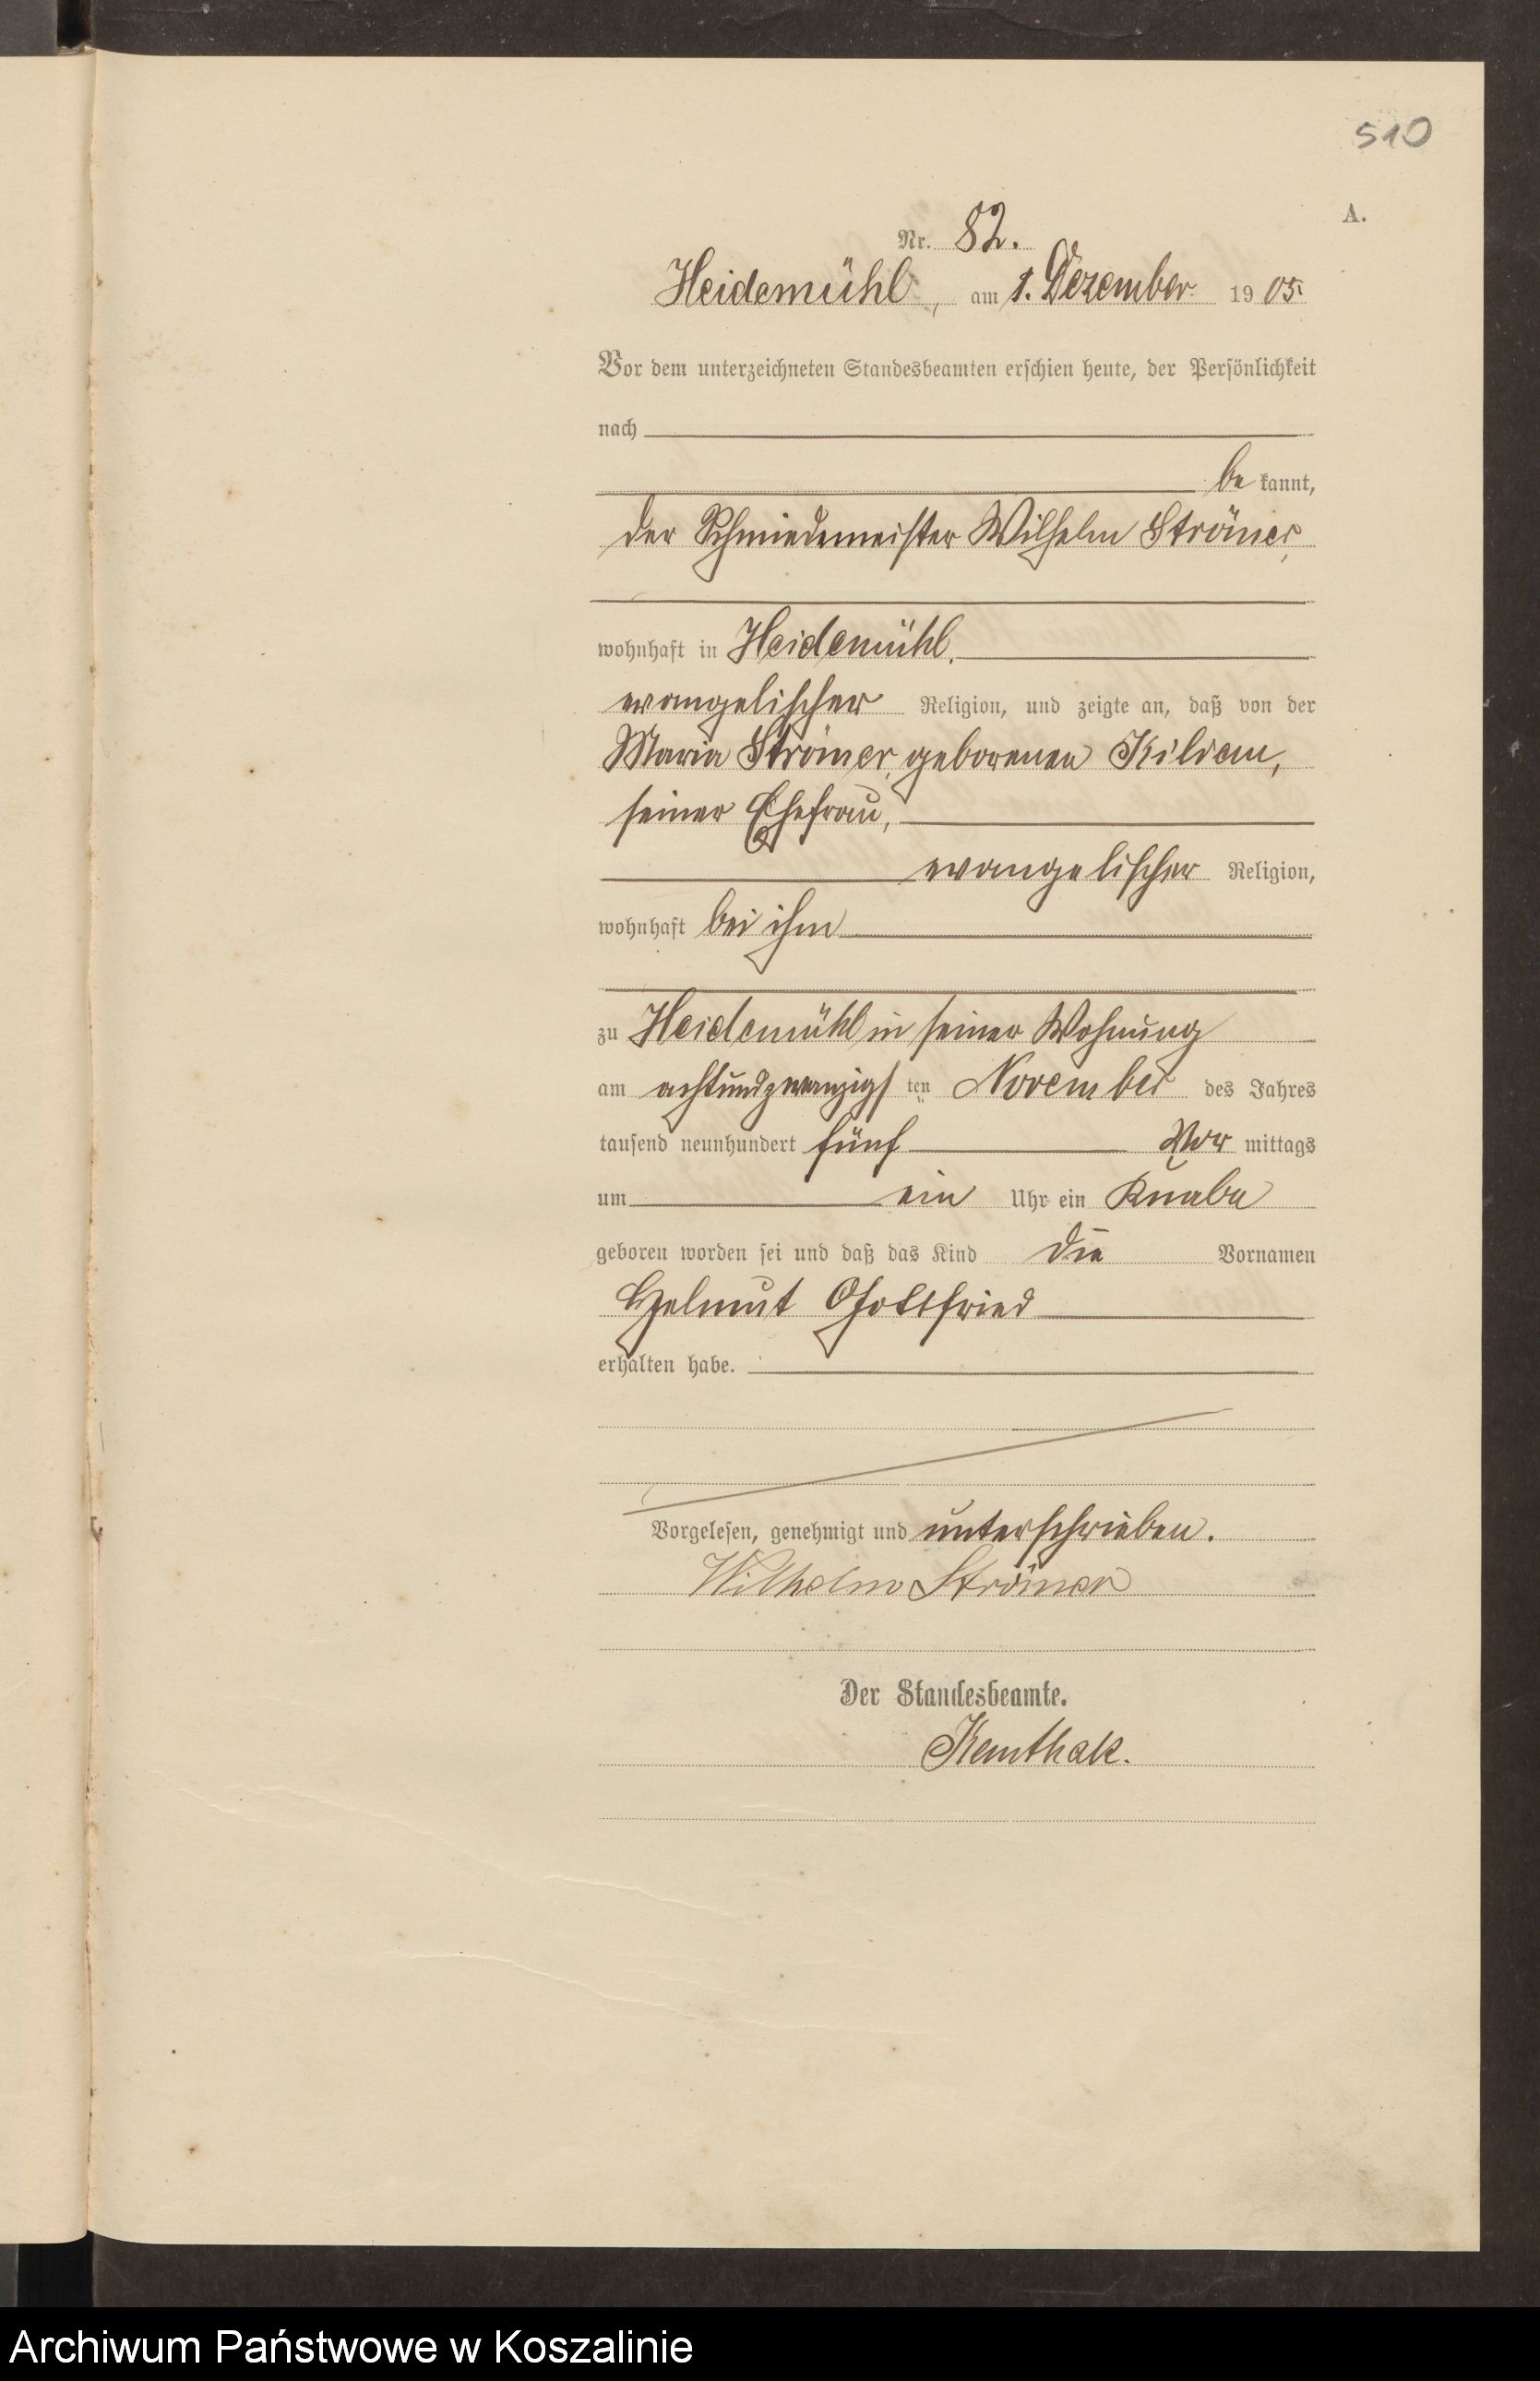 510
A.
Nr. 82.
Heidemühl, am 1. Dezember 1905
Vor dem unterzeichneten Standesbeamten erschien heute, der Persönlichkeit
nach
be kannt,
der Schmiedemeister Wilhelm Strömer,
wohnhaft in Heidemühl,
evangelischer Religion, und zeigte an, daß von der
Maria Strömer, geborenen Kilian,
seiner Ehefrau,
evangelischer Religion,
wohnhaft bei ihm
zu Heidemühl in seiner Wohnung
am achtundzwanzigsten November des Jahres
tausend neunhundert fünf Vor mittags
um ein Uhr ein Knabe
geboren worden sei und daß das Kind die Vornamen
Helmut Gottfried
erhalten habe.
Vorgelesen, genehmigt und unterschrieben.
Wilhelm Strömer
Der Standesbeamte.
Archiwum Państwowe w Koszalinie